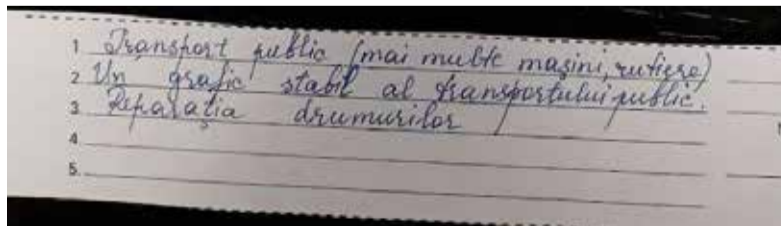 1 Transport public (mai multe mașini, rutiere)
2 Un grafic stabil al transportului public.
3 Reparația drumurilor
4
5.